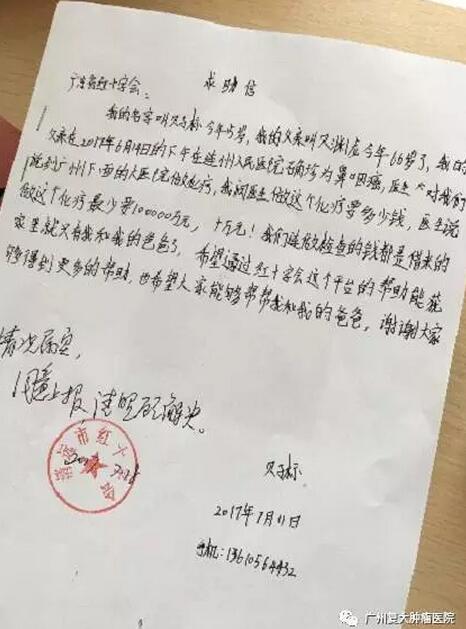 求助信
广东省红十字会:
我的名字叫 今年15岁,我的父亲叫 今年66岁了,我的
父亲在2017年6月14日的下午在连州人民医院确诊为鼻咽癌,医生对我们
说到广州下面的大医院做化疗,我问医生做这个化疗要多少钱,医生说
做这个化疗最少要100000万元,十万元!我们连做检查的钱都是借来的
家里就只有我和我的爸爸了,希望通过红十字会这个平台的帮助能获
够得到更多的帮助,也希望大家能够帮帮我和我的爸爸,谢谢大家
情况属实,
同意上报,请 解决。
市红十
会
2017年7月11日
手机:13610564432
广州复大肿瘤医院